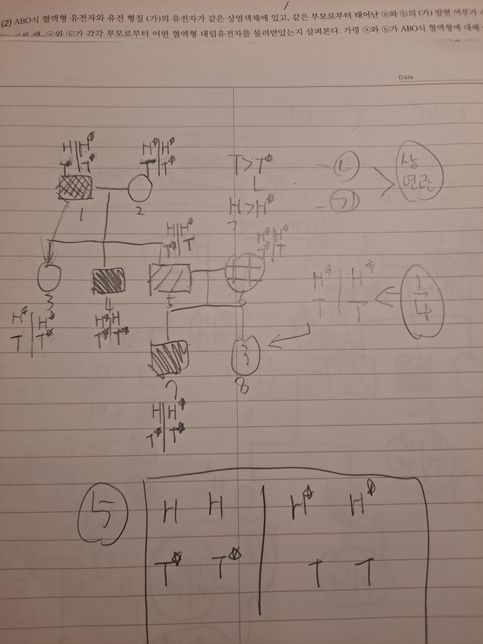 (2) ABO식 혈액형 유전자와 유전 형질 (가)의 유전자가 같은 상염색체에 있고, 같은 부모로부터 태어난 ⓐ와 ⓑ의 (가) 발현 여부가
ⓐ와 ⓑ가 각각 부모로부터 어떤 혈액형 대립유전자를 물려받았는지 살펴본다. 가령 ⓐ와 ⓑ가 ABO식 혈액형에 대해
Data
H | H*
T* | T*
H* | H*
T | T*
1
2
T > T*
H > H*
상
연관
H | H*
T* | T
H* | H*
T* | T
3
4
5
6
H* | H*
T | T*
H | H*
T* | T*
H* | H*
T | T
1/4
7
8
H | H*
T* | T*
5
H H | H* H*
T* T* | T T